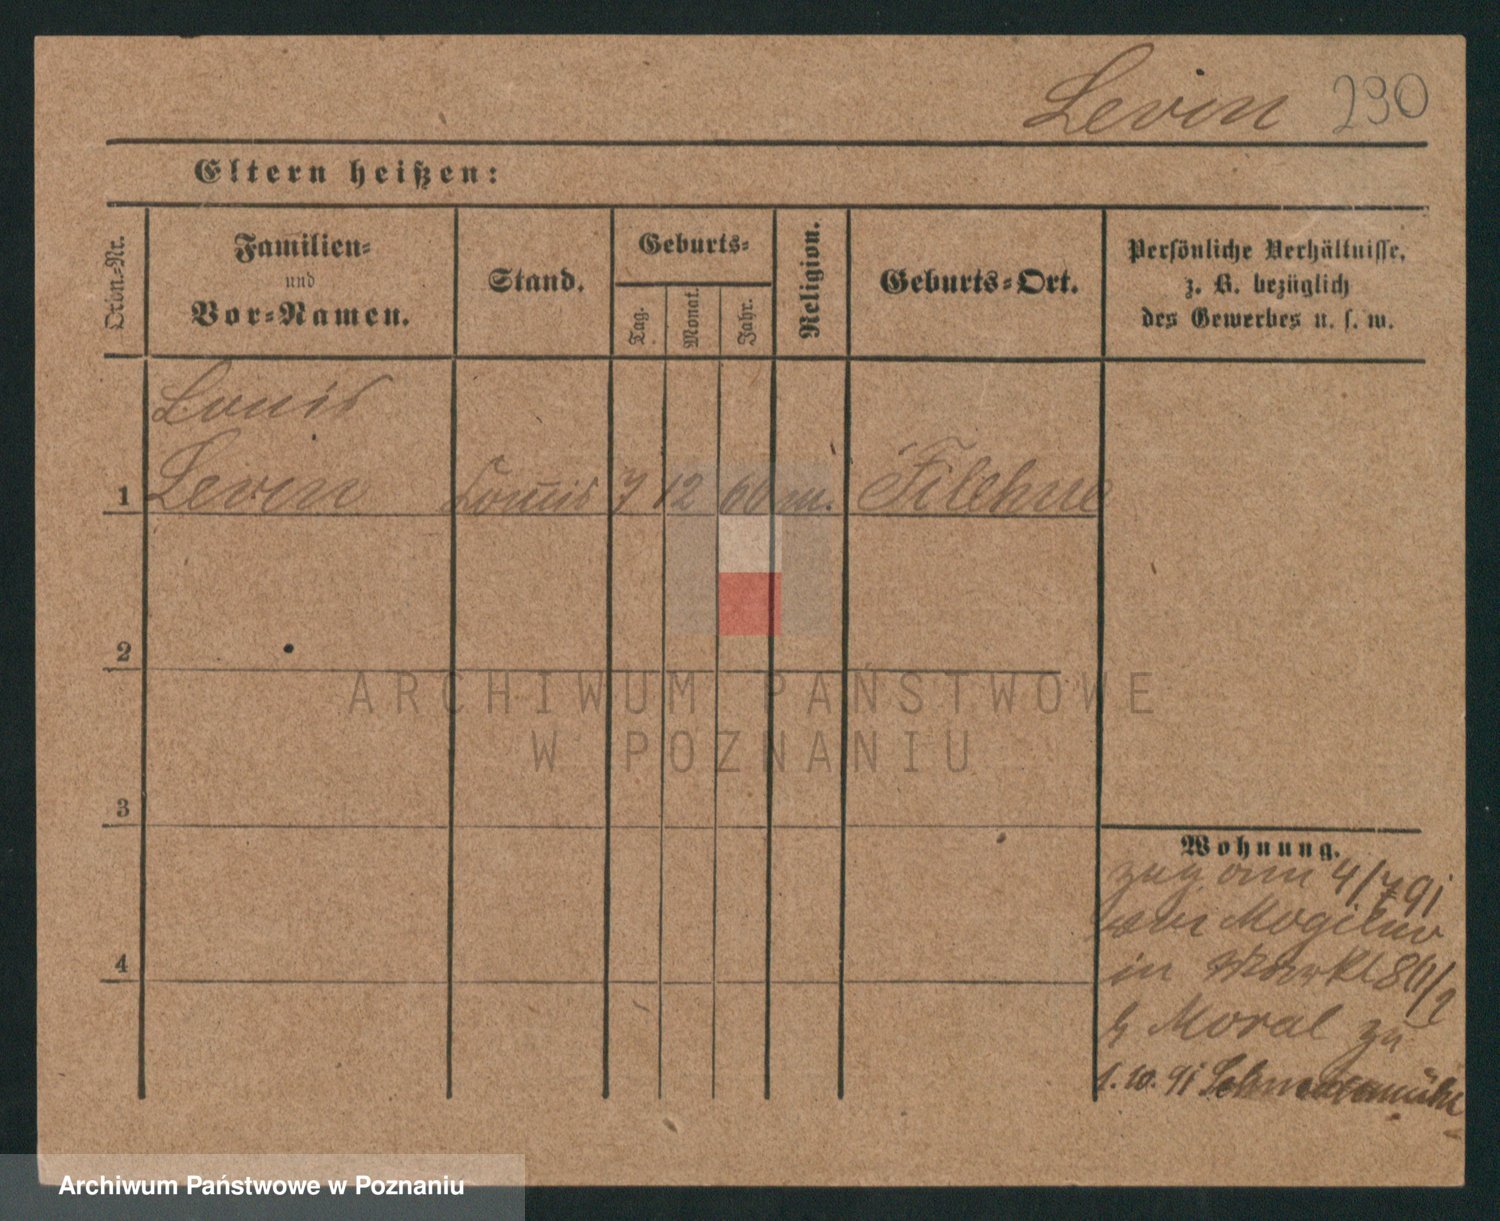 Levin 230
Eltern heißen:
Ordn.-Nr.
Familien-
und
Vor-Namen.
Stand.
Geburts-
Tag.
Monat.
Jahr.
Religion.
Geburts-Ort.
Persönliche Verhältnisse,
z. B. bezüglich
des Gewerbes u. s. w.
Louis
1 Levin 7 12 60 m. Filehne
2
3
4
Wohnung.
zug am 4/7 91
Mogilno
in Markt 86/2
b Moral zu
1.10.91 Schneidemühl
ARCHIWUM PAŃSTWOWE
W POZNANIU
Archiwum Państwowe w Poznaniu